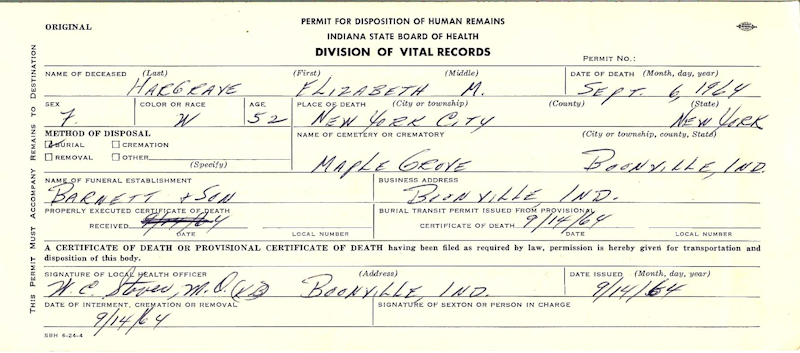 ORIGINAL
PERMIT FOR DISPOSITION OF HUMAN REMAINS
INDIANA STATE BOARD OF HEALTH
DIVISION OF VITAL RECORDS
PERMIT NO.:
THIS PERMIT MUST ACCOMPANY REMAINS TO DESTINATION
NAME OF DECEASED (Last) (First) (Middle) DATE OF DEATH (Month, day, year)
HARGRAVE ELIZABETH M. SEPT. 6, 1964
SEX COLOR OR RACE AGE PLACE OF DEATH (City or township) (County) (State)
F. W 52 NEW YORK CITY NEW YORK
METHOD OF DISPOSAL NAME OF CEMETERY OR CREMATORY (City or township, county, State)
BURIAL CREMATION
REMOVAL OTHER
(Specify) MAPLE GROVE BOONVILLE, IND.
NAME OF FUNERAL ESTABLISHMENT BUSINESS ADDRESS
BARNETT & SON BOONVILLE IND.
PROPERLY EXECUTED CERTIFICATE OF DEATH BURIAL TRANSIT PERMIT ISSUED FROM PROVISIONAL
RECEIVED 9/14/64 CERTIFICATE OF DEATH 9/14/64
DATE LOCAL NUMBER DATE LOCAL NUMBER
A CERTIFICATE OF DEATH OR PROVISIONAL CERTIFICATE OF DEATH having been filed as required by law, permission is hereby given for transportation and
disposition of this body.
SIGNATURE OF LOCAL HEALTH OFFICER (Address) DATE ISSUED (Month, day, year)
W. C. Stover, M.D. BOONVILLE, IND. 9/14/64
DATE OF INTERMENT, CREMATION OR REMOVAL SIGNATURE OF SEXTON OR PERSON IN CHARGE
9/14/64
SBH 6-24-4